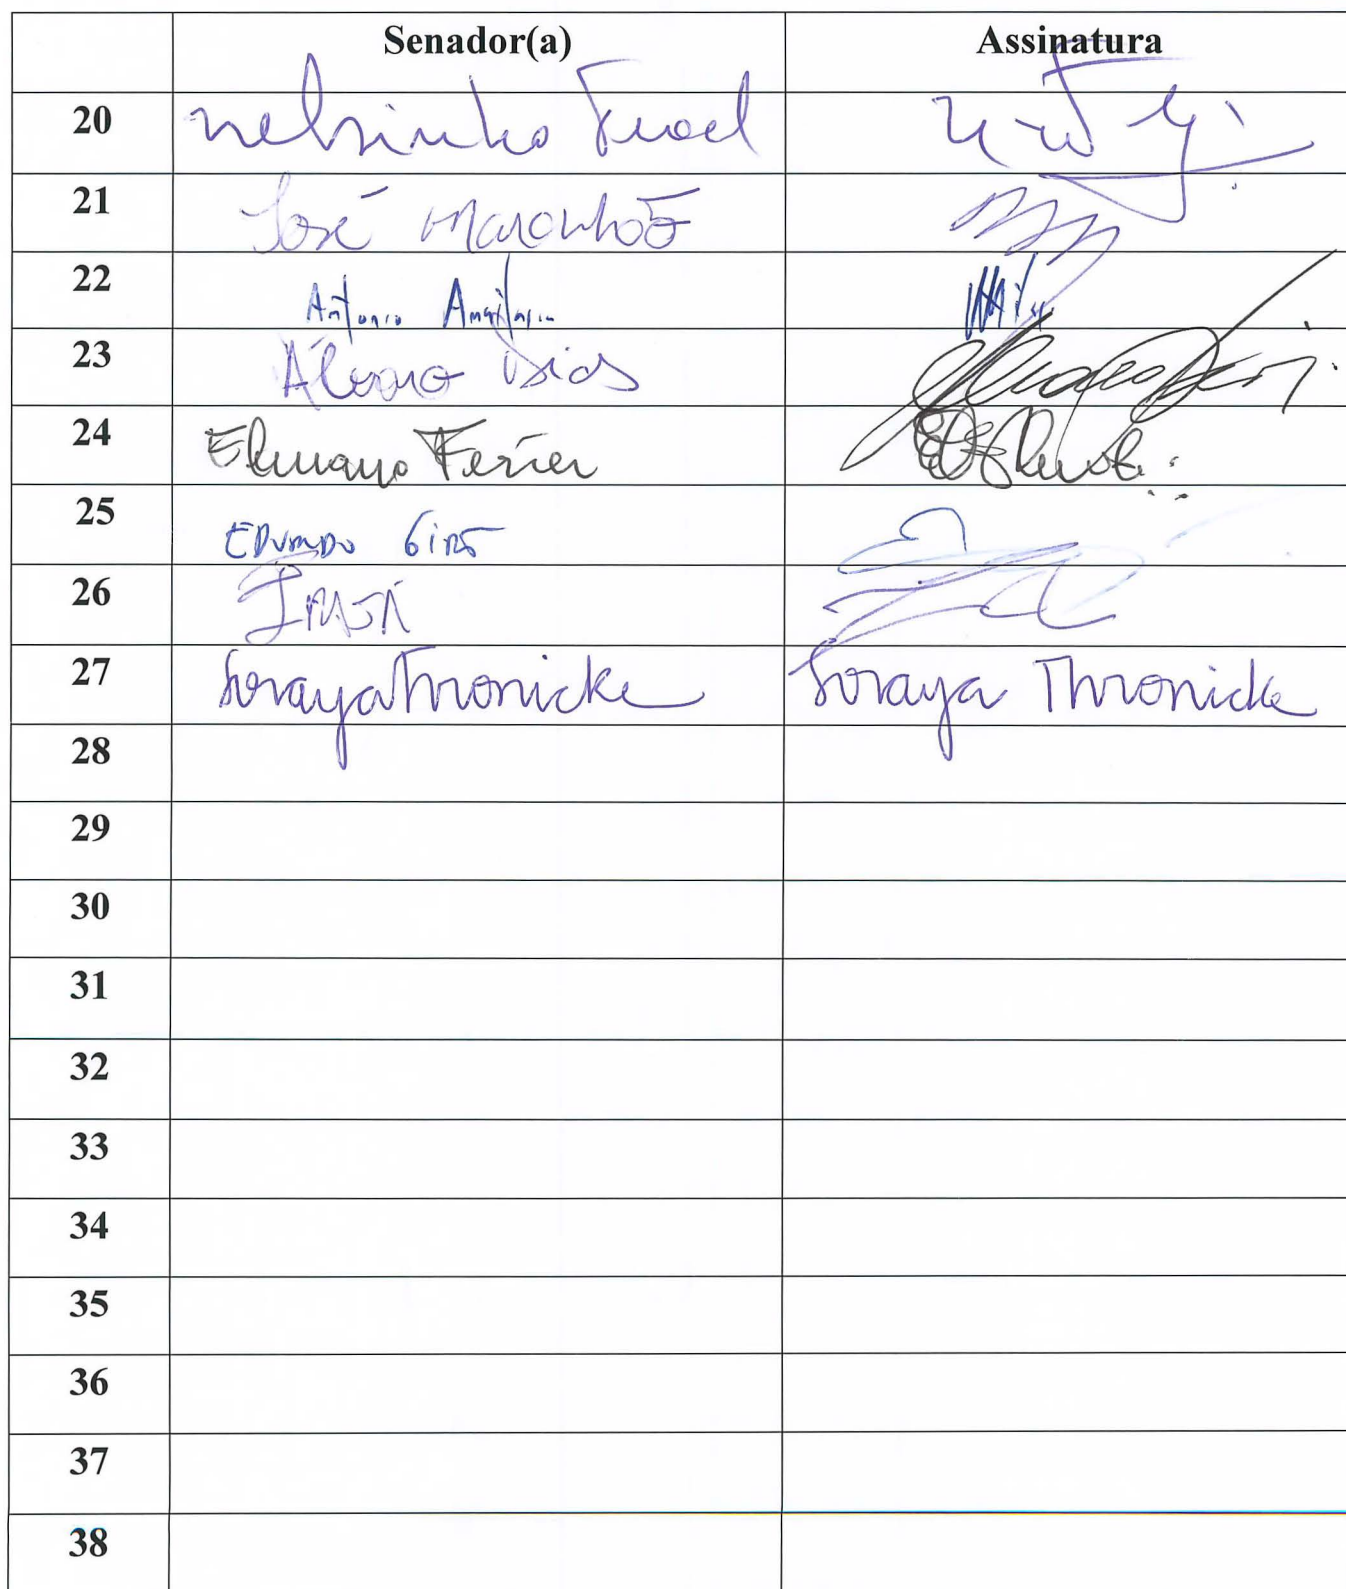 Senador(a) Assinatura
20 Nelsinho Trad
21 José Maranhão
22 Antonio Anastasia
23 Álvaro Dias
24 Elmano Férrer
25 EDUARDO GIRÃO
26
27 Soraya Thronicke Soraya Thronicke
28
29
30
31
32
33
34
35
36
37
38